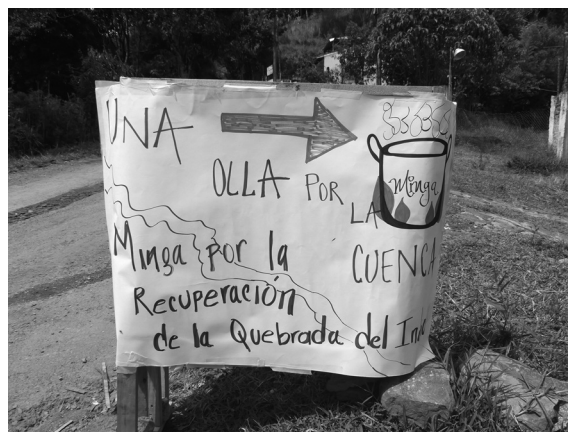 UNA
OLLA POR
LA
Minga
CUENCA
Minga por la
Recuperación
de la Quebrada del